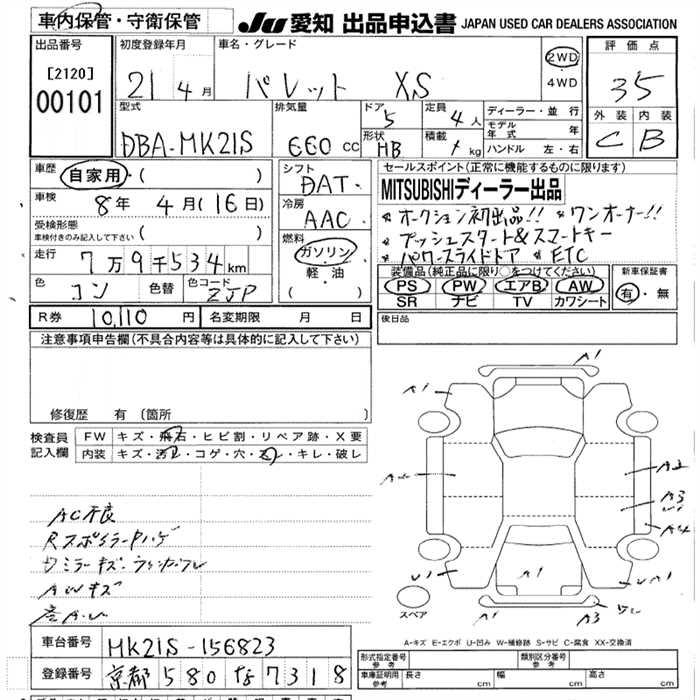 車内保管・守衛保管
JU 愛知 出品申込書 JAPAN USED CAR DEALERS ASSOCIATION
出品番号
[2120]
00101
初度登録年月
21 4月
車名・グレード
パレット XS
2WD
・4WD
評価点
3.5
外装 内装
C B
型式
DBA-MK21S
排気量
660 cc
ドア
5
形状
HB
定員
4人
積載
kg
ディーラー・並行
モデル年式 年
ハンドル 左・右
車歴
自家用・( )
車検
8年 4月(16日)
受検形態
車検付きのみ記入して下さい ( )
走行
7万9千534km
色
コン
色替
色コード
ZJP
シフト
DAT
冷房
AAC
燃料
ガソリン
・軽油
( )
セールスポイント(正常に機能するものに限ります)
MITSUBISHIディーラー出品
*オークション初出品!! *ワンオーナー!!
*プッシュスタート&スマートキー
*パワースライドドア *ETC
装備品(純正品に限り○をつけてください)
PS PW エアB AW
SR ナビ TV カワシート
新車保証書
有・無
R券 10,110 円
名変期限 月 日
後日品
注意事項申告欄(不具合内容等は具体的に記入して下さい)
修復歴 有(箇所 )
検査員記入欄
FW キズ・飛石・ヒビ割・リペア跡・X要
内装 キズ・汚レ・コゲ・穴・スレ・キレ・破レ
AC不良
AWキズ
A1
A1
A2
A3
A4
U1
A1
A1
A3
スペア
A-キズ E-エクボ U-凹み W-補修跡 S-サビ C-腐食 XX-交換済
車台番号
MK21S-156823
登録番号
京都 580 な 7318
形式指定番号 参考
類別区分番号 参考
車庫証明用 参考
長さ cm
幅 cm
高さ cm